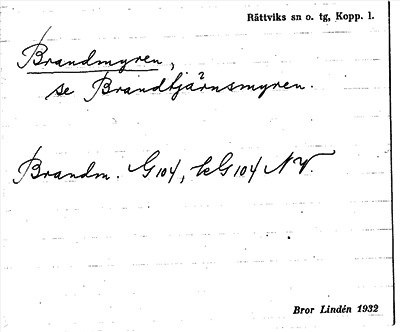 Rättviks sn o. tg, Kopp. l.
Brandmyren,
se Brandtjärnsmyren.
Brandm. G104, kG104 NV.
Bror Lindén 1932